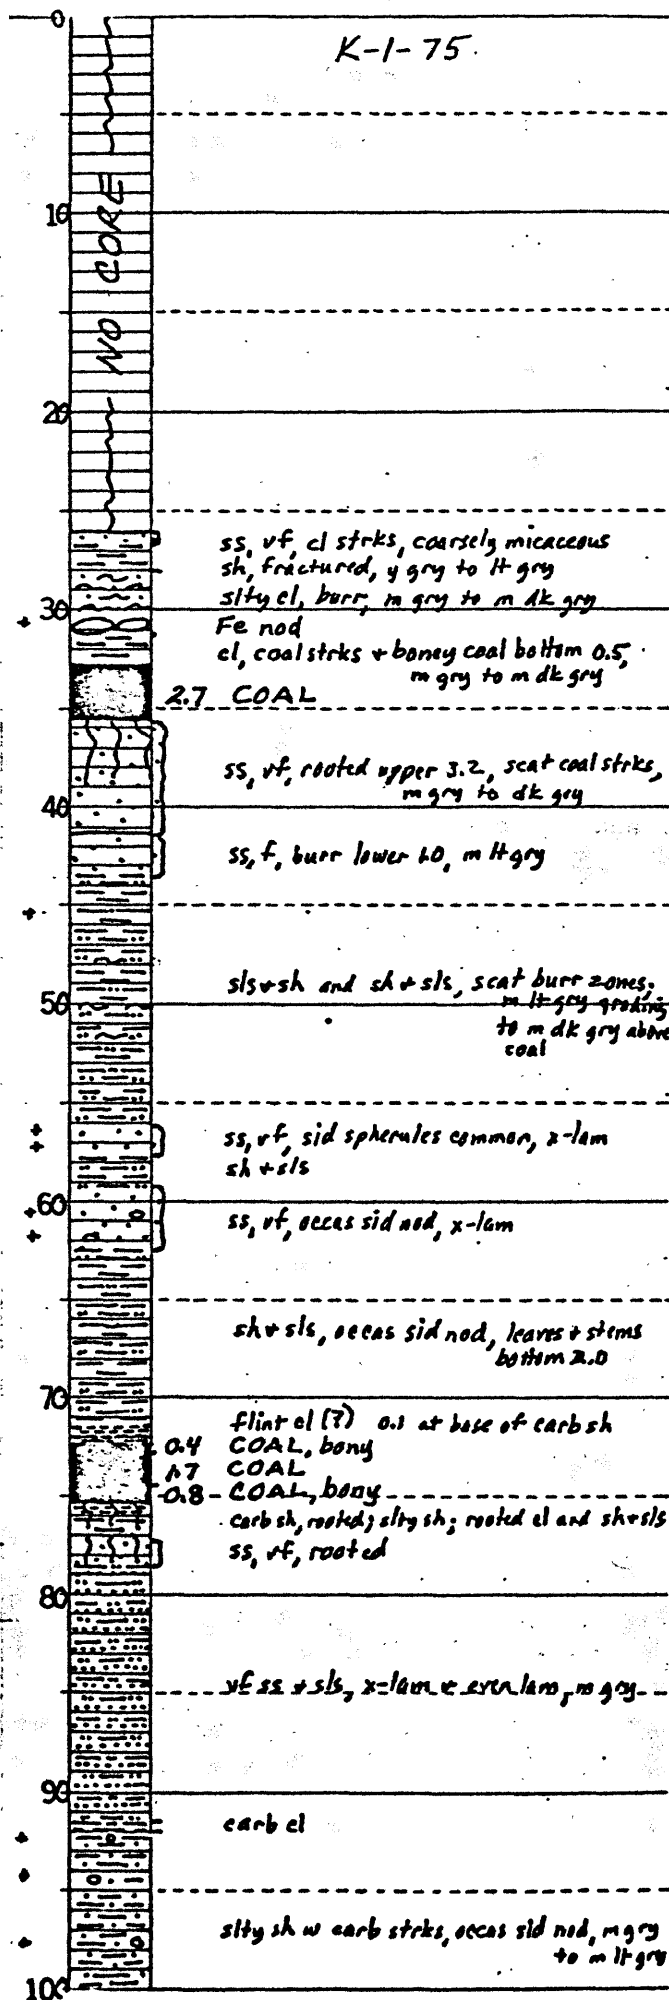 0
K-1-75
10
NO CORE
20
ss, vf, cl strks, coarsely micaceous
sh, fractured, y gry to lt gry
slty cl, burr, m gry to m dk gry
30
Fe nod
cl, coal strks + boney coal bottom 0.5,
m gry to m dk gry
2.7 COAL
ss, vf, rooted upper 3.2, scat coal strks,
m gry to dk gry
40
ss, f, burr lower 1.0, m lt gry
sls+sh and sh+sls, scat burr zones,
50
m lt gry grading
to m dk gry above
coal
ss, vf, sid spherules common, x-lam
sh + sls
60
ss, vf, occas sid nod, x-lam
sh + sls, occas sid nod, leaves + stems
bottom 2.0
70
flint cl (?) 0.1 at base of carb sh
0.4 COAL, bony
1.7 COAL
0.8 COAL, bony
carb sh, rooted; slty sh; rooted cl and sh+sls
ss, vf, rooted
80
vf ss + sls, x-lam + even lam, m gry
90
carb cl
slty sh w carb strks, occas sid nod, m gry
to m lt gry
100